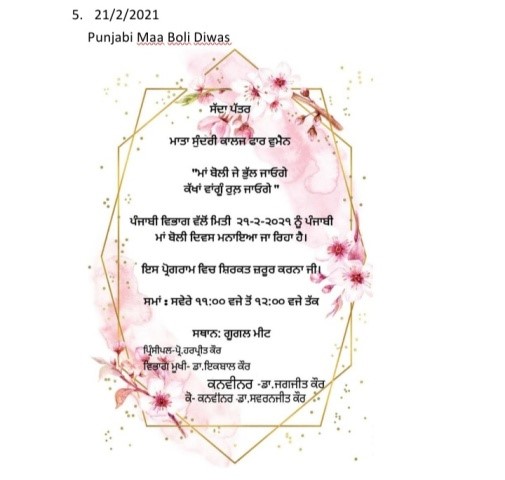 5. 21/2/2021
Punjabi Maa Boli Diwas
ਸੱਦਾ ਪੱਤਰ
ਮਾਤਾ ਸੁੰਦਰੀ ਕਾਲਜ ਫਾਰ ਵੂਮੈਨ
"ਮਾਂ ਬੋਲੀ ਜੇ ਭੁੱਲ ਜਾਓਗੇ
ਕੱਖਾਂ ਵਾਂਗੂੰ ਰੁਲ਼ ਜਾਓਗੇ "
ਪੰਜਾਬੀ ਵਿਭਾਗ ਵੱਲੋਂ ਮਿਤੀ ੨੧-੨-੨੦੨੧ ਨੂੰ ਪੰਜਾਬੀ
ਮਾਂ ਬੋਲੀ ਦਿਵਸ ਮਨਾਇਆ ਜਾ ਰਿਹਾ ਹੈ।
ਇਸ ਪ੍ਰੋਗਰਾਮ ਵਿਚ ਸ਼ਿਰਕਤ ਜ਼ਰੂਰ ਕਰਨਾ ਜੀ।
ਸਮਾਂ : ਸਵੇਰੇ ੧੧:੦੦ ਵਜੇ ਤੋਂ ੧੨:੦੦ ਵਜੇ ਤੱਕ
ਸਥਾਨ: ਗੂਗਲ ਮੀਟ
ਪ੍ਰਿੰਸੀਪਲ-ਪ੍ਰੋ.ਹਰਪ੍ਰੀਤ ਕੌਰ
ਵਿਭਾਗ ਮੁਖੀ- ਡਾ.ਇਕਬਾਲ ਕੌਰ
ਕਨਵੀਨਰ -ਡਾ.ਜਗਜੀਤ ਕੌਰ
ਕੋ- ਕਨਵੀਨਰ -ਡਾ.ਸਵਰਨਜੀਤ ਕੌਰ